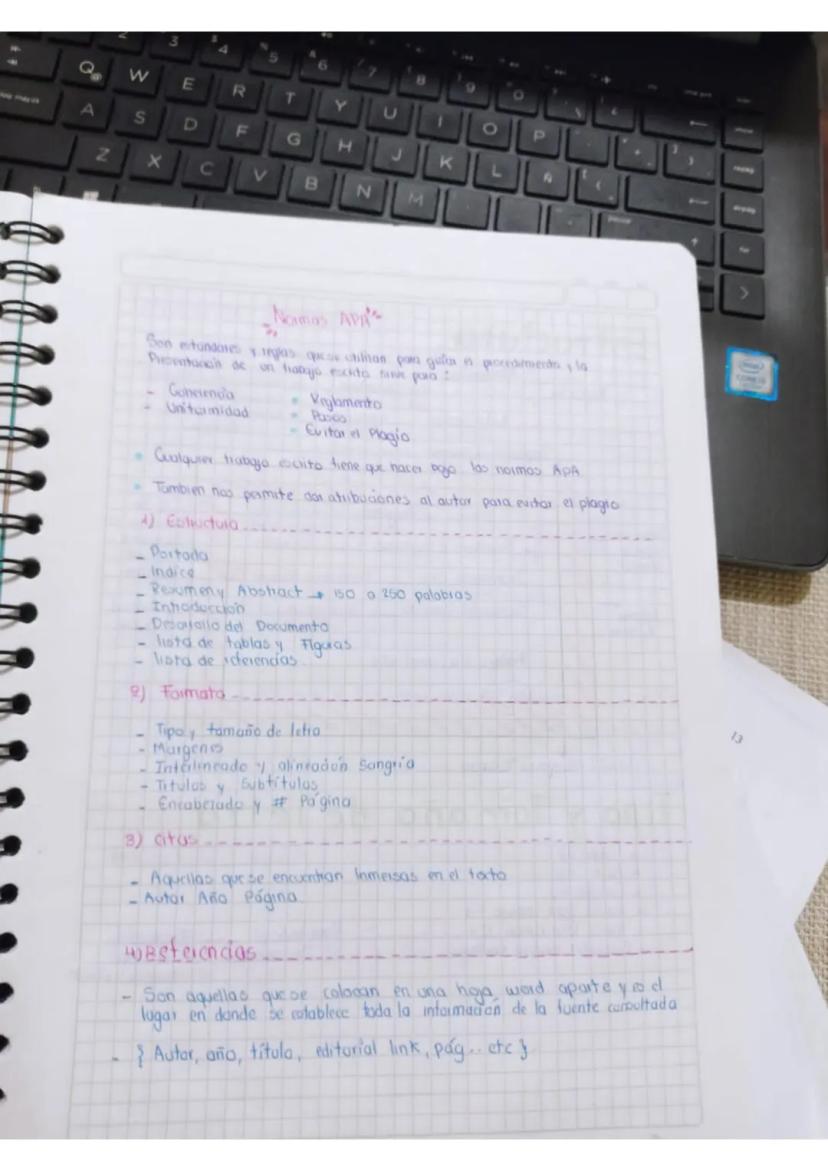 Normas APA
Son estandares y reglas que se utilizan para guiar el procedimiento y la
Presentación de un trabajo escrito sirve para:
- Coherencia
- Uniformidad
• Reglamento
• Pasos
• Evitar el Plagio
• Cualquier trabajo escrito tiene que hacer bajo las normas APA
• Tambien nos permite dar atribuciones al autor para evitar el plagio
1) Estructura
- Portada
- Indice
- Resumen y Abstract → 150 a 250 palabras
- Introducción
- Desarrollo del Documento
- lista de tablas y Figuras
- lista de referencias
2) Formato
- Tipo y tamaño de letra
- Margenes
- Interlineado y alineación Sangria
- Titulos y Subtítulos
- Encabezado y # Página
3) Citas
- Aquellas que se encuentran Inmersas en el texto
- Autor Año Página
4) Referencias
- Son aquellas que se colocan en una hoja word aparte y es el
lugar en donde se establece toda la información de la fuente consultada
- { Autor, año, título, editorial link, pág.. etc }
13
Q W E R T Y U I O P
A S D F G H J K L Ñ
Z X C V B N M
intel
CORE i5